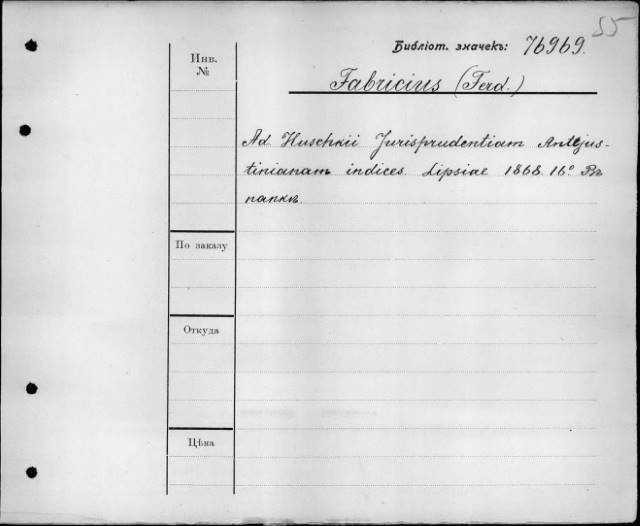 55
Библіот. значекъ: 76969.
Инв.
№
Fabricius (Ferd.)
Ad Huschkii Jurisprudentiam Antejus-
tinianam indices. Lipsiae 1868. 16° Въ
папкѣ.
По заказу
Откуда
Цѣна